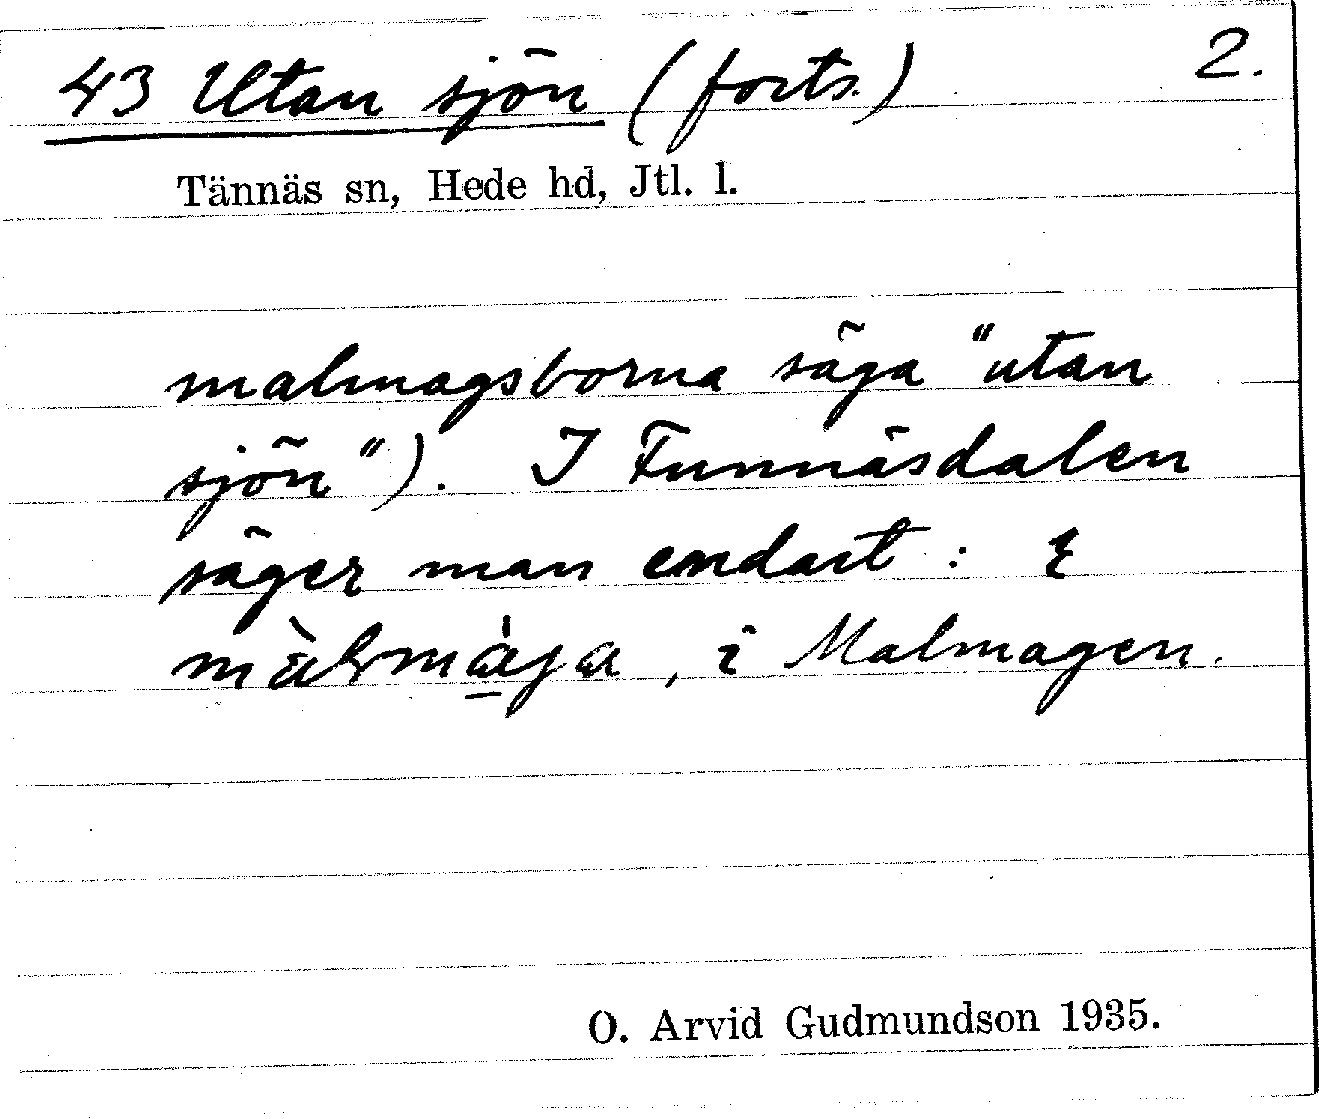 43 Utan sjön (forts.) 2.
Tännäs sn, Hede hd, Jtl. l.
malmagsborna säga "utan
sjön"). I Funnäsdalen
säger man endast : 
, i Malmagen.
O. Arvid Gudmundson 1935.